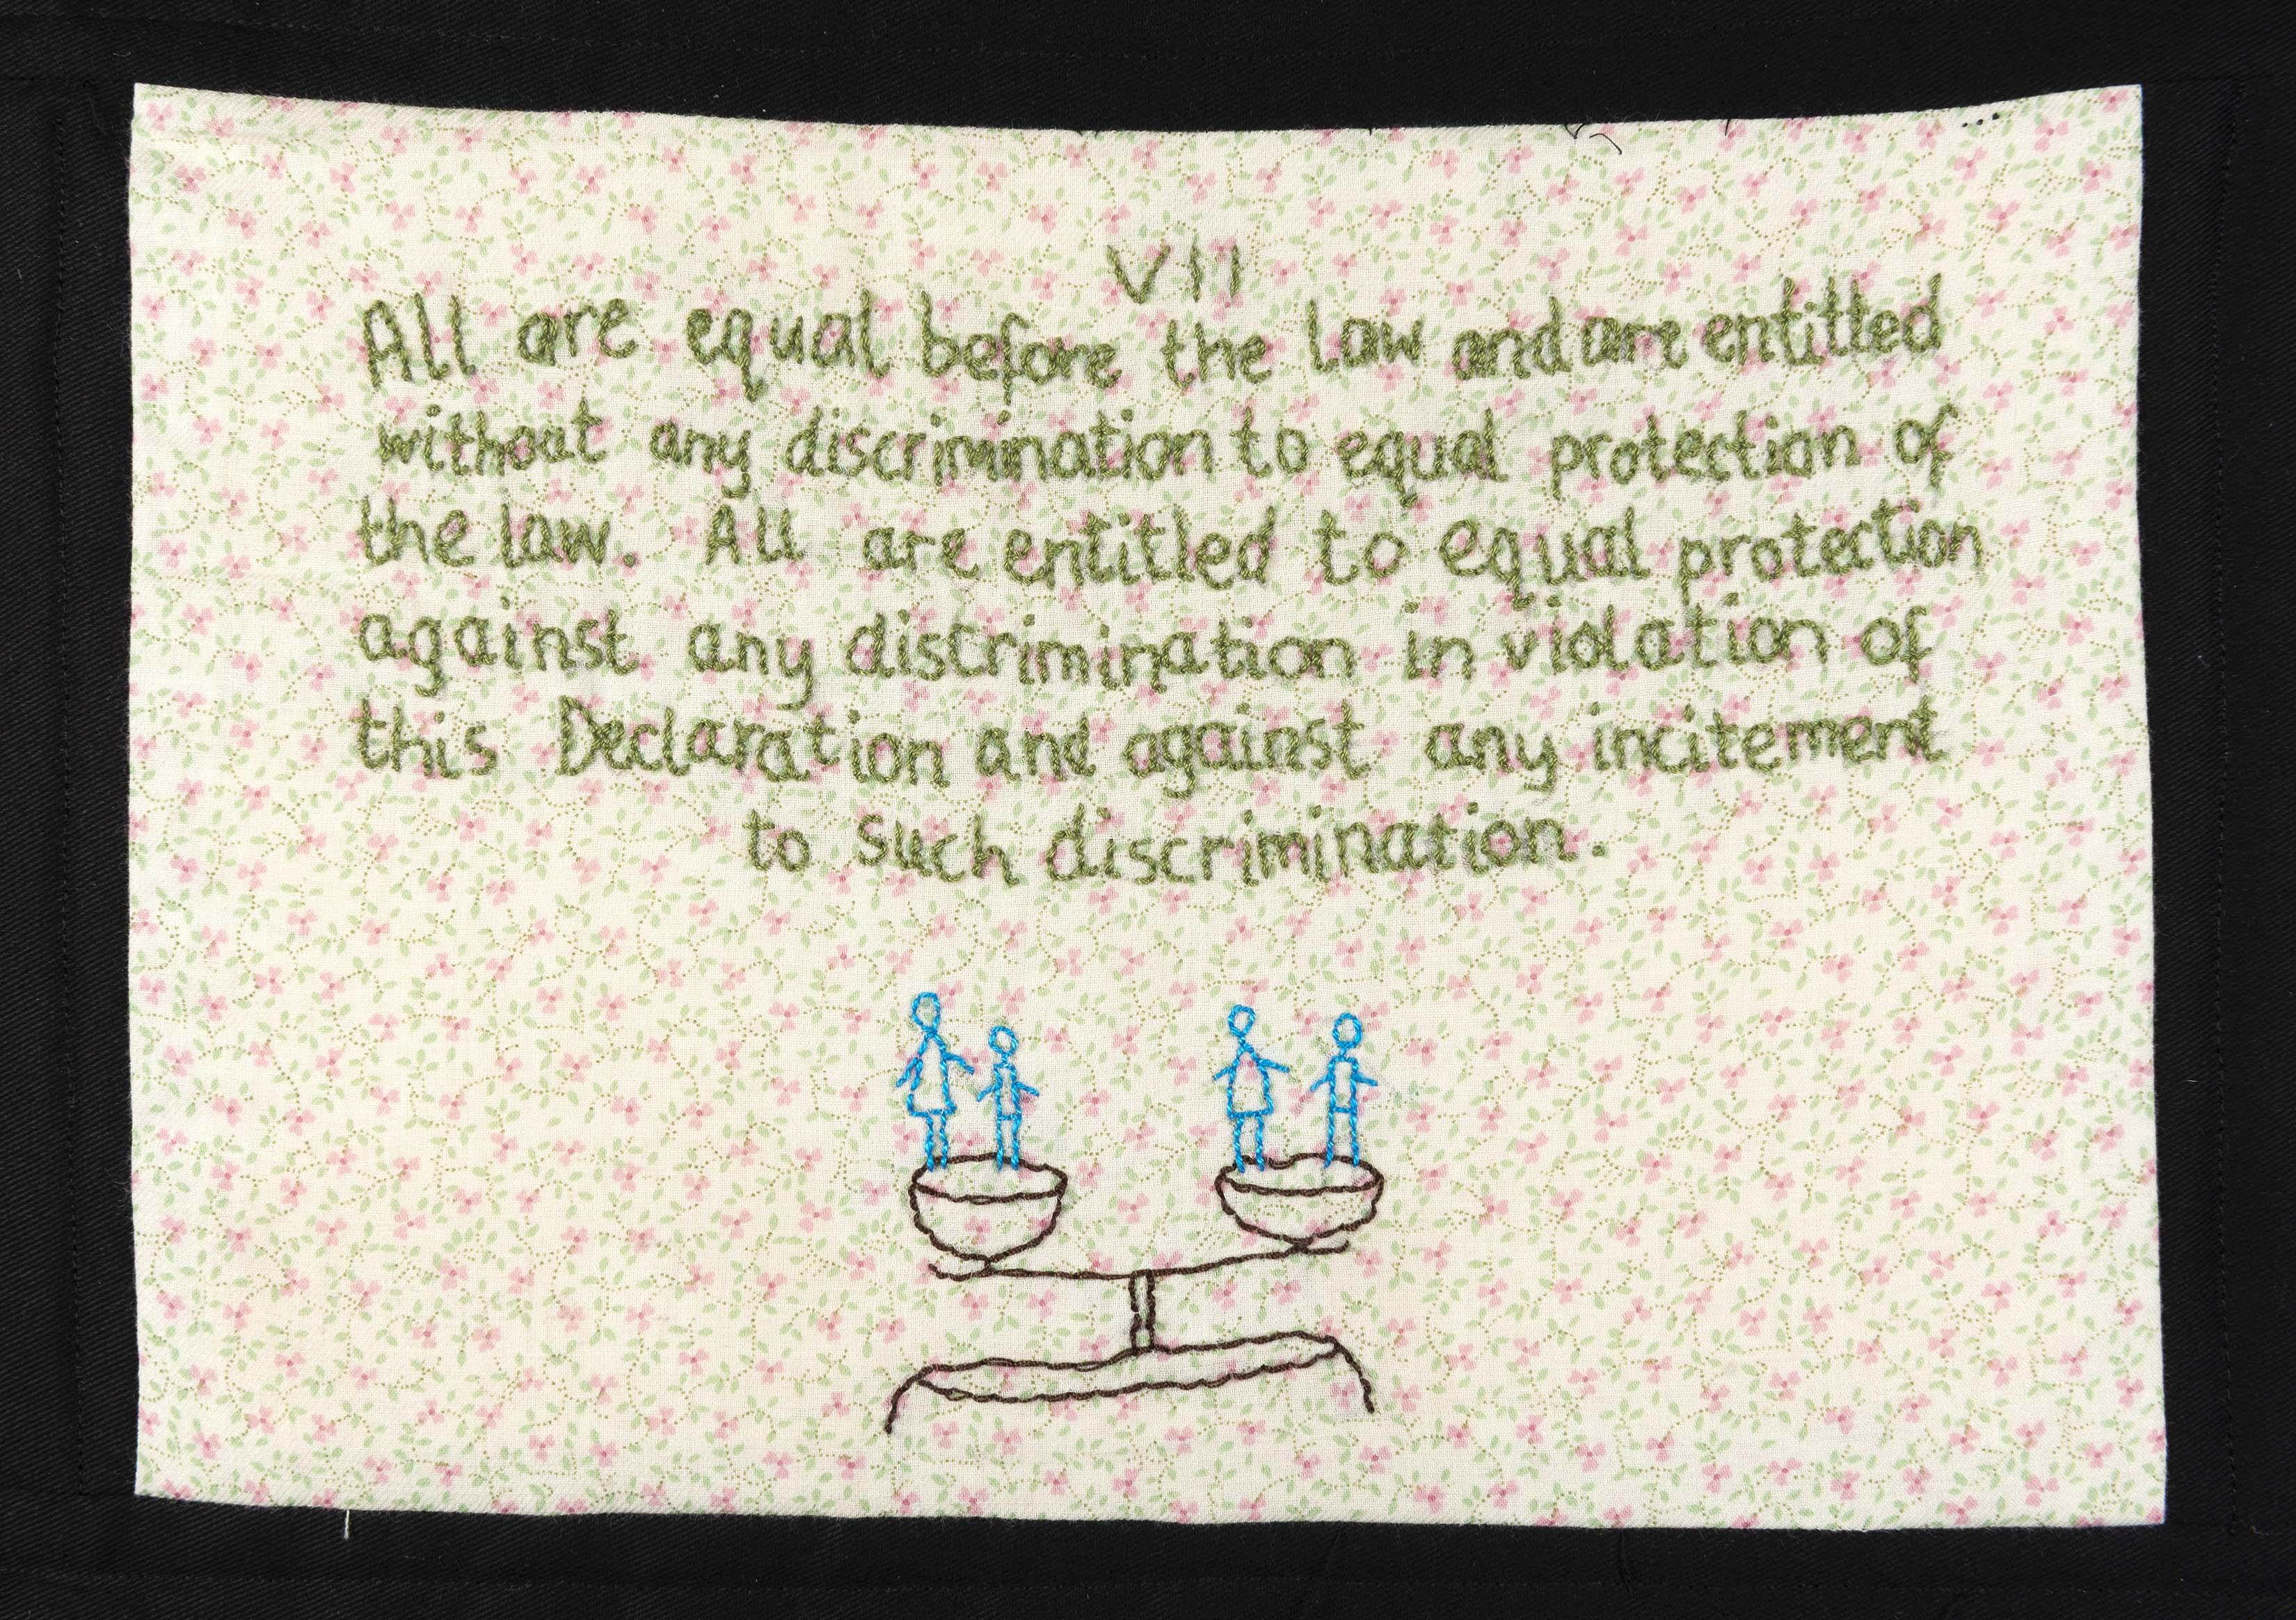 VII
All are equal before the law and are entitled
without any discrimination to equal protection of
the law. All are entitled to equal protection
against any distrimination in violation of
this Declaration and against any incitement
to Such discrimination.